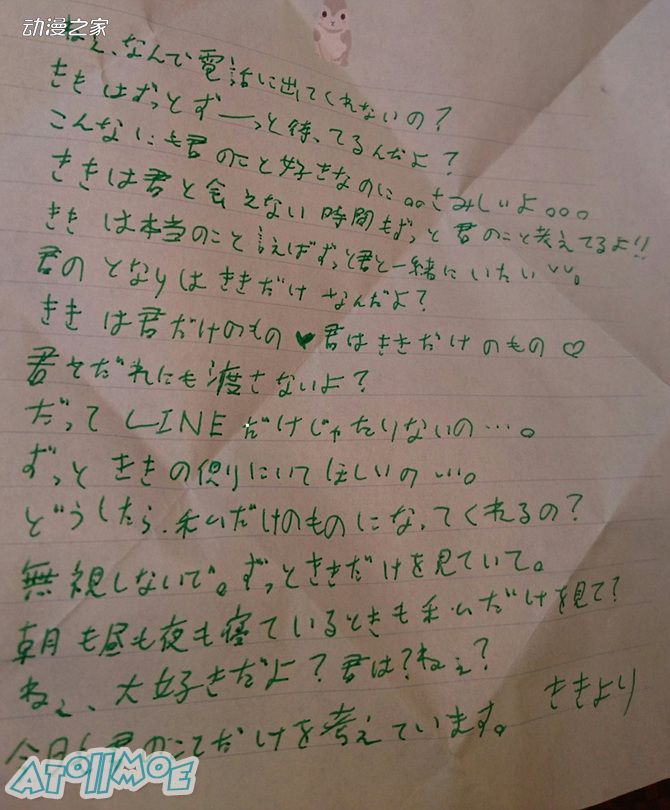 动漫之家
ねぇ、なんで電話に出てくれないの?
ききはずっとずーっと待ってるんだよ?
こんなにも君のこと好きなのに。。さみしいよ。。。
ききは君と会えない時間もずっと君のこと考えてるよ!!
ききは本当のこと言えばずっと君と一緒にいたいいい。
君のとなりはききだけなんだよ?
ききは君だけのもの♥君はききだけのもの♡
君をだれにも渡さないよ?
だってLINEだけじゃたりないの…。
ずっとききの側りにいてほしいの…。
どうしたら、私だけのものになってくれるの?
無視しないで。ずっとききだけを見ていて。
朝も昼も夜も寝ているときも私だけを見て?
ねぇ、大好きだよ?君は?ねぇ?
今日も君のことだけを考えています。 ききより
ATOllMOE